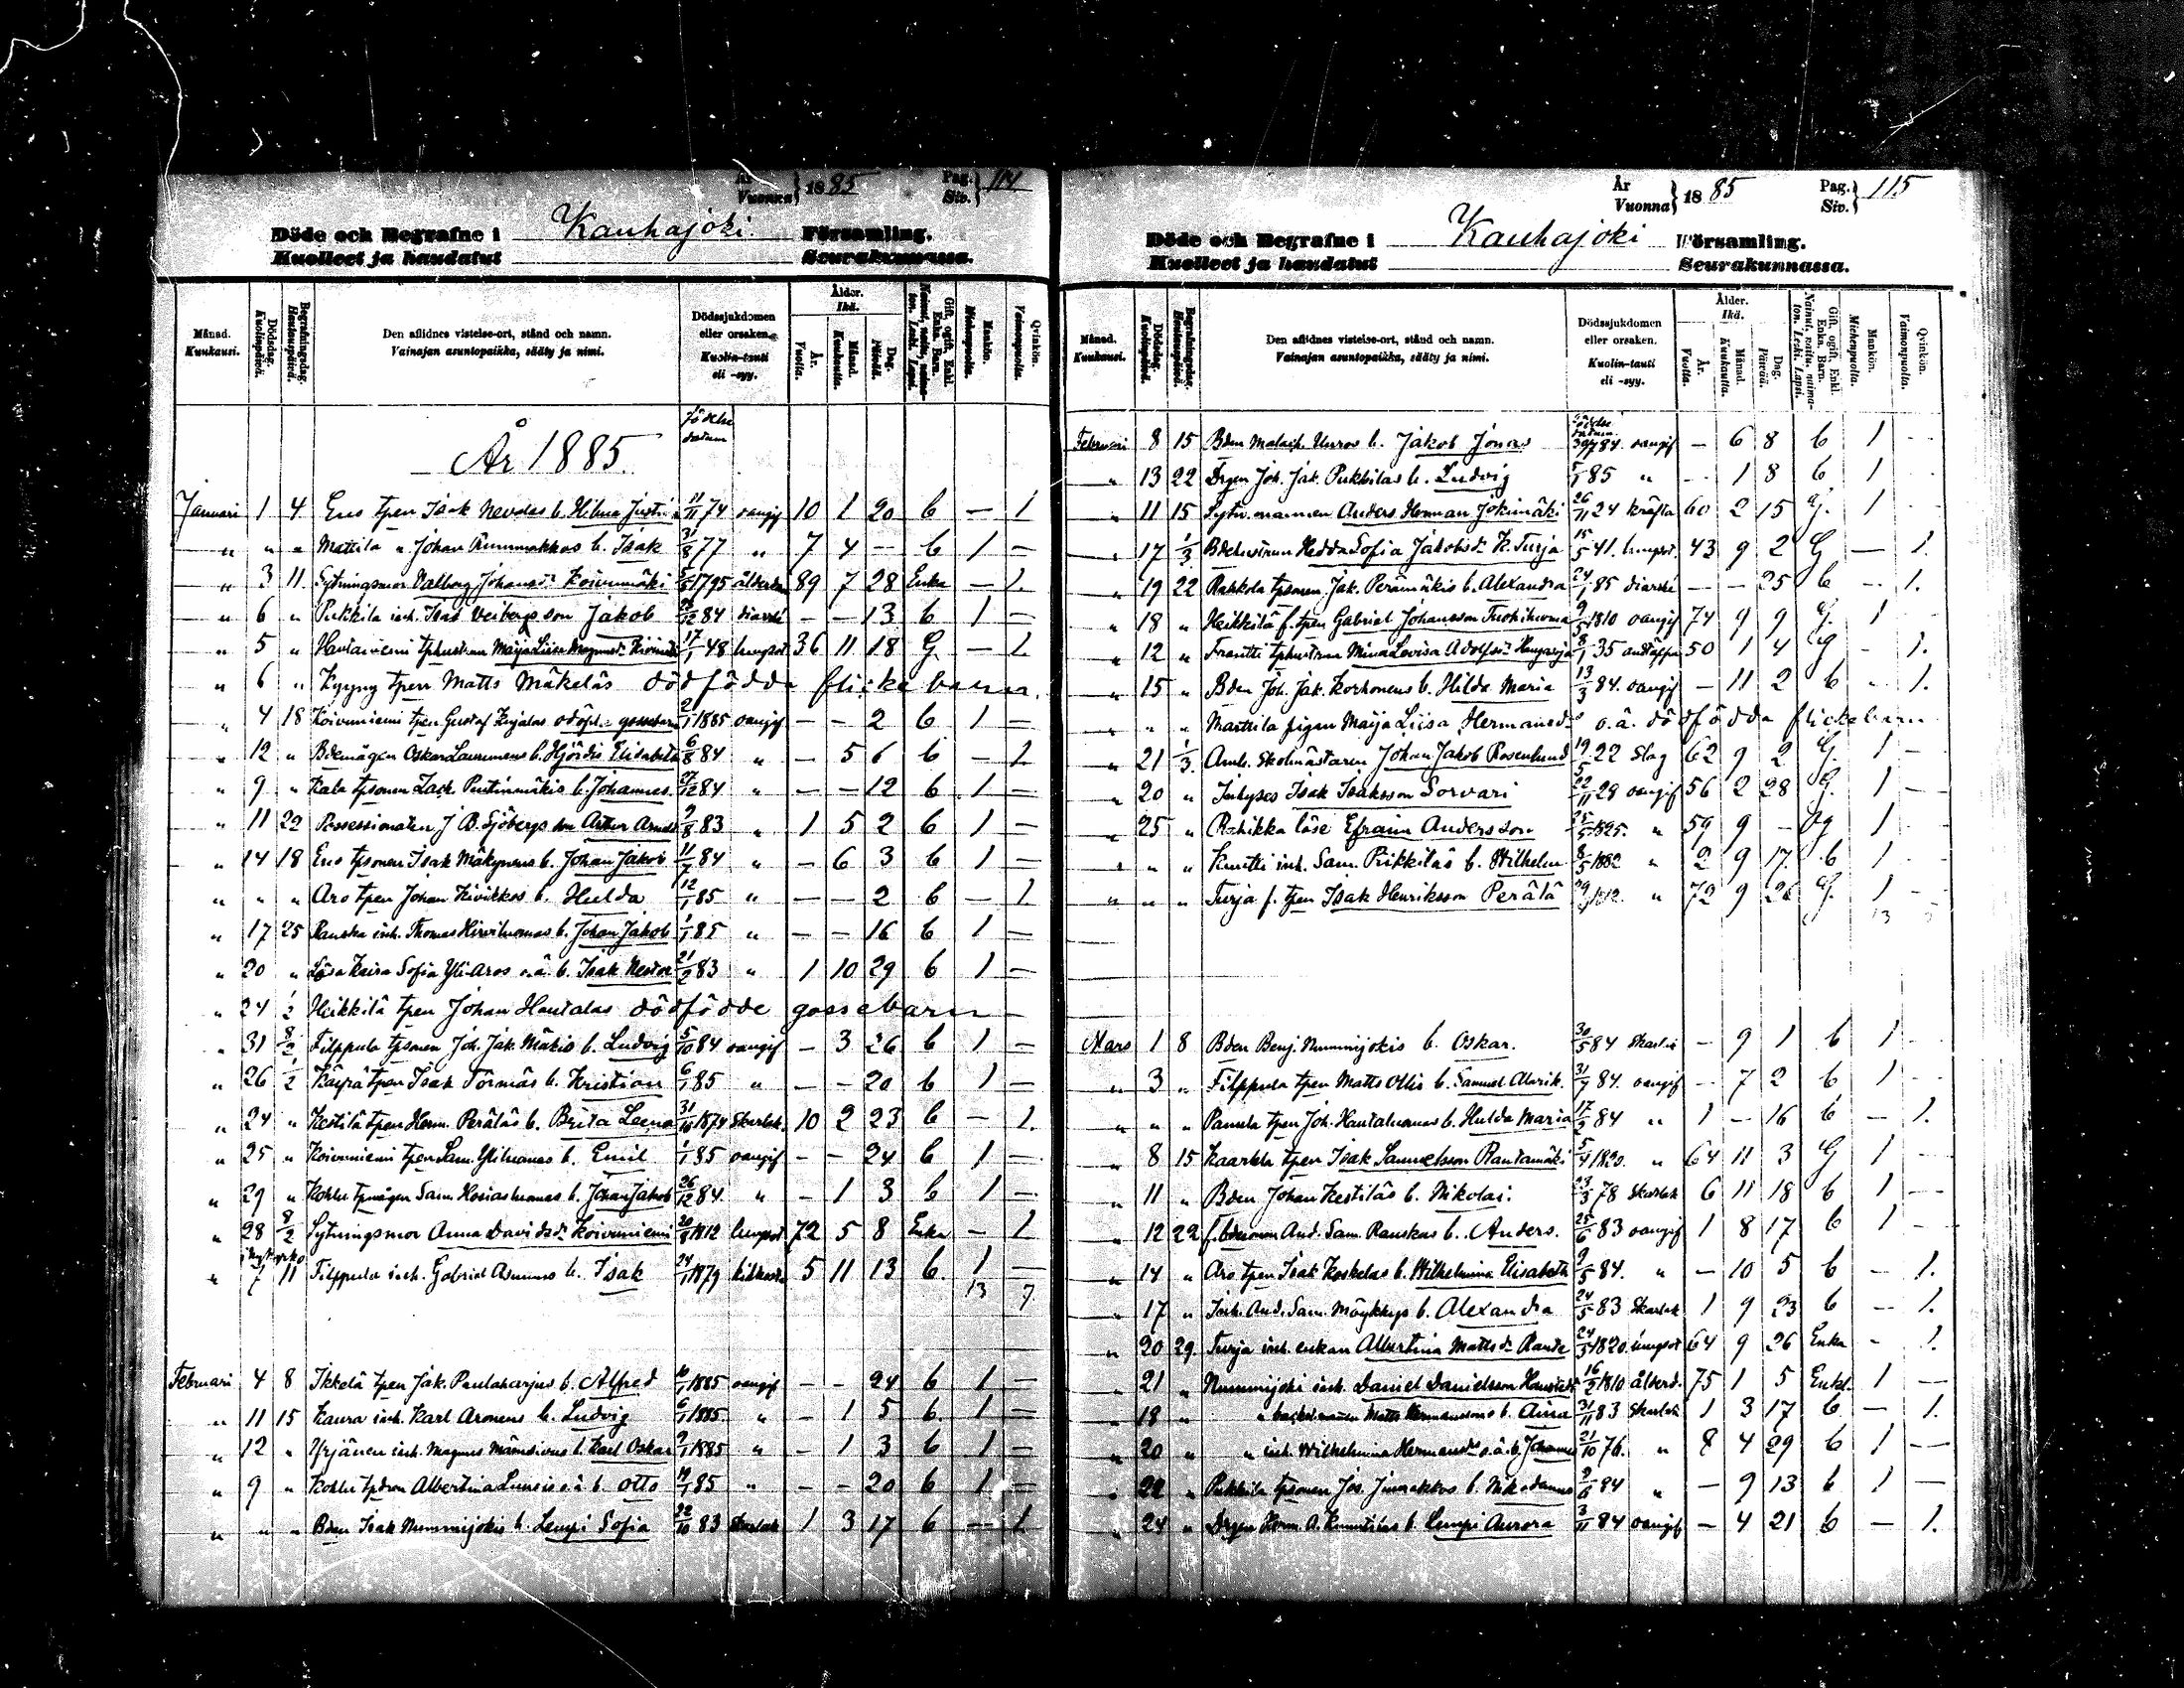 År Vuonna } 1885 Pag. Siv. } 114
Döde och Begrafne i Kauhajoki Församling.
Kuolleet ja haudatut Seurakunnassa.
Månad. Kuukausi. Dödsdag. Kuolinpäivä. Begrafningsdag. Hautauspäivä. Den aflidnes vistelse-ort, stånd och namn. Vainajan asuntopaikka, sääty ja nimi. Dödssjukdomen eller orsaken. Kuolin-tauti eli -syy. Ålder. Ikä. År. Vuotta. Månad. Kuukautta. Dag. Päivää. Gift, ogift, Enkl. Enka. Barn. Mankön. Miehenpuolta. Qvinkön. Vaimonpuolta.
År 1885 födelse datum
Januari 1 4 Eno tpen Isak Nevalas b. Hilma Justi 11/11 74 oangif 10 1 20 b — 1
" " " Mattila " Johan Rummakkos b. Isak 31/8 77 " 7 4 — b 1 —
" 3 11 Sytningsmor Valborg Johansdr Koivumäki 1795 ålderdom 89 7 28 Enka — 1
" 6 " Pukkila inh. Isak Veibergs son Jakob 84 diarré — — 13 b 1 —
" 5 " Hautaniemi tphustrun Maija Liisa 17/1 48 lungsot 36 11 18 G — 1
" 6 " Kyyny tpen Matts Mäkeläs dödfödda flickebarn
" 4 18 Koivuniemi tpen Gustaf odöpt gossebarn 2/1 1885 oangif — — 2 b 1 —
" 12 " Bdemågen Oskar b. Hjördis Elisabeth 6/8 84 " — 5 6 b — 1
" 9 " tpsonen Zack. Pentinmäkis b. Johannes 27/12 84 " — — 12 b 1 —
" 11 22 Possessionaten J. B. Sjöbergs son Artur 9/8 83 " 1 5 2 b 1 —
" 14 18 Eno tpsonen Isak Mäkynens b. Johan Jakob 11/7 84 " — 6 3 b 1 —
" " " Aro tpen Johan Kivikkos b. Hulda 12/1 85 " — — 2 b — 1
" 17 25 Rauska inh. Thomas Hirviluomas b. Johan Jakob 1/1 85 " — — 16 b 1 —
" 20 " Lösa Kaisa Sofia Yli-Aros o.ä. b. Isak Nestor 21/2 83 " 1 10 29 b 1 —
" 24 1/2 Heikkilä tpen Johan Hautalas dödfödde gossebarn —
" 31 8/2 Filppula tpsonen Joh. Jak. Mäkis b. Ludvig 5/10 84 oangif — 3 26 b 1 —
" 26 1/2 Käyrä tpen Isak Törmäs b. Kristian 6/1 85 " — — 20 b 1 —
" 24 " Kestilä tpen Herm. Peräläs b. Brita Leena 31/10 1874 Skarlak. 10 2 23 b — 1
" 25 " Koivuniemi tpen Sam. Yliluomas b. Emil 1/1 85 oangif — — 24 b 1 —
" 29 " Kohlu tpmågen Sam. Hosiasluomas b. Johan Jakob 26/12 84 " — 1 3 b 1 —
" 28 8/2 Sytningsmor Anna Davidsdr Koivuniemi 20/8 1812 lungsot 72 5 8 Enka — 1
" 7 11 Filppula inh. Gabriel Asunens b. Isak 24/1 1879 kikhosta 5 11 13 b 1 —
13 7
Februari 4 8 Ikkelä tpen Jak. Paulaharjus b. Alfred 1885 oangif — — 24 b 1 —
" 11 15 Kaura inh. Karl Aronens b. Ludvig 6/1 1885 " — 1 5 b 1 —
" 12 " Yrjänen inh. Magnus b. Karl Oskar 9/1 1885 " — 1 3 b 1 —
" 9 " Kohlu Albertina o.ä b. Otto 85 " — — 20 b 1 —
" " " Bden Isak Nummijokis b. Lempi Sofia 22/10 83 Skarlak 1 3 17 b — 1
År Vuonna } 1885 Pag. Siv. } 115
Döde och Begrafne i Kauhajoki Församling.
Kuolleet ja haudatut Seurakunnassa.
Månad. Kuukausi. Dödsdag. Kuolinpäivä. Begrafningsdag. Hautauspäivä. Den aflidnes vistelse-ort, stånd och namn. Vainajan asuntopaikka, sääty ja nimi. Dödssjukdomen eller orsaken. Kuolin-tauti eli -syy. Ålder. Ikä. År. Vuotta. Månad. Kuukautta. Dag. Päivää. Gift, ogift, Enkl. Enka. Barn. Mankön. Miehenpuolta. Qvinkön. Vaimonpuolta.
Februari 8 15 Bden Malach. Uuros b. Jakob Jonas 84 oangif — 6 8 b 1
" 13 22 Drgen Joh. Jak. Pukkilas b. Ludvig 5/1 85 " — 1 8 b 1
" 11 15 Sytn. mannen Anders Herman Jokimäki 26/11 24 kräfta 60 2 15 G. 1
" 17 1/3 Bdehustrun Hedda Sofia Jakobsdr K. Turja 15/5 41 lungsot 43 9 2 G — 1.
" 19 22 tpsonen Jak. Perämäkis b. Alexandra 24/1 85 diarré — — 25 b — 1.
" 18 " Heikkilä f. tpen Gabriel Johansson 9/5 1810 oangif 74 9 9 G. 1
" 12 " Frantti tphustrun Mina Lovisa Adolfsdr 8/1 35 andtäppa 50 1 4 G — 1.
" 15 " Bden Joh. Jak. Korhonens b. Hilda Maria 13/3 84 oangif — 11 2 b — 1.
" " " Marttila pigan Maija Liisa Hermansdr o.ä. dödfödda flickebarn
" 21 1/3 Amb. Skolmästaren Johan Jakob Rosenlund 19/5 22 Slag 62 9 2 G. 1 —
" 20 " Inhyses Isak Isaksson Sorvari 22/11 28 oangif 56 2 28 G. 1 —
" 25 " Rahikka löse Efraim Andersson 25/5 1825 " 59 9 — Og 1
" " " Knutti inh. Sam. Pukkiläs b. Wilhelm 8/5 1882 " 2 9 17 b 1
" " " Turja f. tpen Isak Henriksson Perälä 1812 " 72 9 26 G. 1
Mars 1 8 Bden Benj. Nummijokis b. Oskar. 30/5 84 Skarlak — 9 1 b 1
" 3 " Filppula tpen Matts Ollis b. Samuel Alarik. 31/7 84 oangif — 7 2 b 1
" " " Panula tpen Joh. Hautaluomas b. Hulda Maria 17/2 84 " 1 — 16 b — 1.
" 8 15 Kaarkka tpen Isak Samuelsson Rantamäki 5/4 1820 " 64 11 3 G 1
" 11 " Bden Johan Kestiläs b. Nikolai. 23/3 78 Skarlak 6 11 18 b 1
" 12 22 f. bdesonen And. Sam. Rauskas b. Anders. 25/6 83 oangif 1 8 17 b 1
" 14 " Aro tpen Isak Koskelas b. Wilhelmina Elisabeth 9/5 84. " — 10 5 b — 1.
" 17 " Inh. And. Sam. Möykkys b. Alexandra 24/5 83 Skarlak 1 9 23 b — 1.
" 20 29 Turja inh. enkan Albertina Mattsdr Rante 24/5 1820 lungsot 64 9 26 Enka — 1.
" 21 " Nummijoki inh. Daniel Danielsson 16/2 1810 ålderd. 75 1 5 Enkl. 1 —
" 18 " " Matts Hermanssons b. Aina 31/11 83 Skarlak 1 3 17 b — 1.
" 20 " " inh. Wilhelmina Hermansdr o.ä. b. Johannes 21/10 76. " 8 4 29 b 1 —
" 22 " Pukkila tpsonen Jos. b. Nikodemus 9/6 84 " — 9 13 b 1 —
" 24 " Drgen Herm. A. b. Lempi Aurora 3/11 84 oangif — 4 21 b — 1.